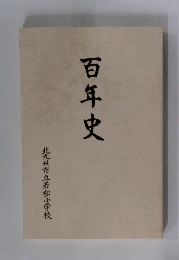 百年史
北九州市立若松小学校